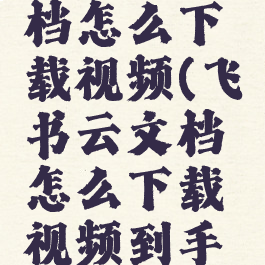 档怎么下
载视频(飞
书云文档
怎么下载
视频到手